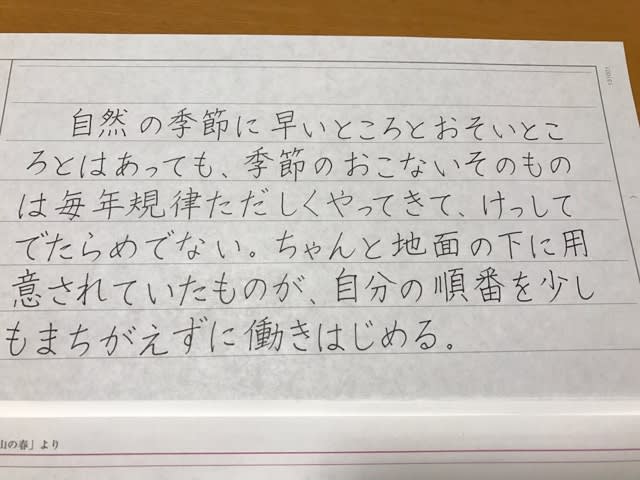 自然の季節に早いところとおそいとこ
ろとはあっても、季節のおこないそのもの
は毎年規律ただしくやってきて、けっして
でたらめでない。ちゃんと地面の下に用
意されていたものが、自分の順番を少し
もまちがえずに働きはじめる。
山の春」より